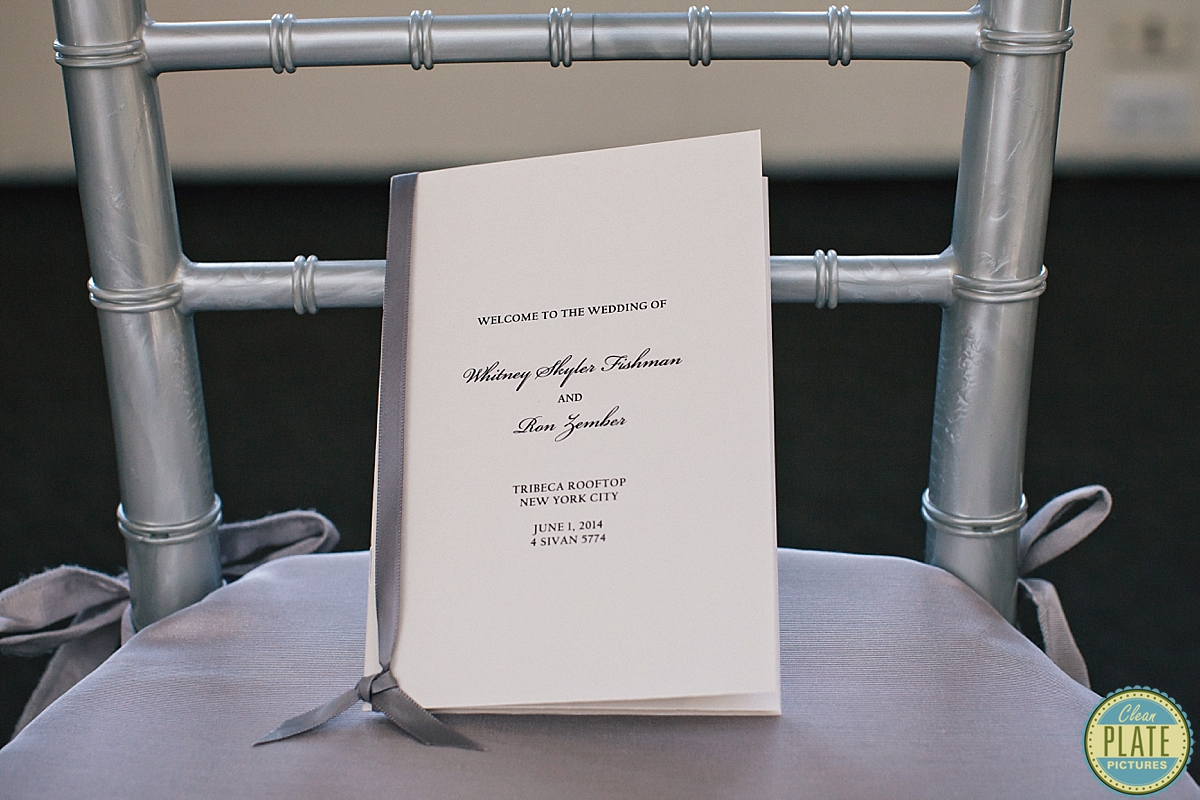 WELCOME TO THE WEDDING OF
Whitney Skyler Fishman
AND
Ron Zember
TRIBECA ROOFTOP
NEW YORK CITY
JUNE 1, 2014
4 SIVAN 5774
Clean
PLATE
PICTURES